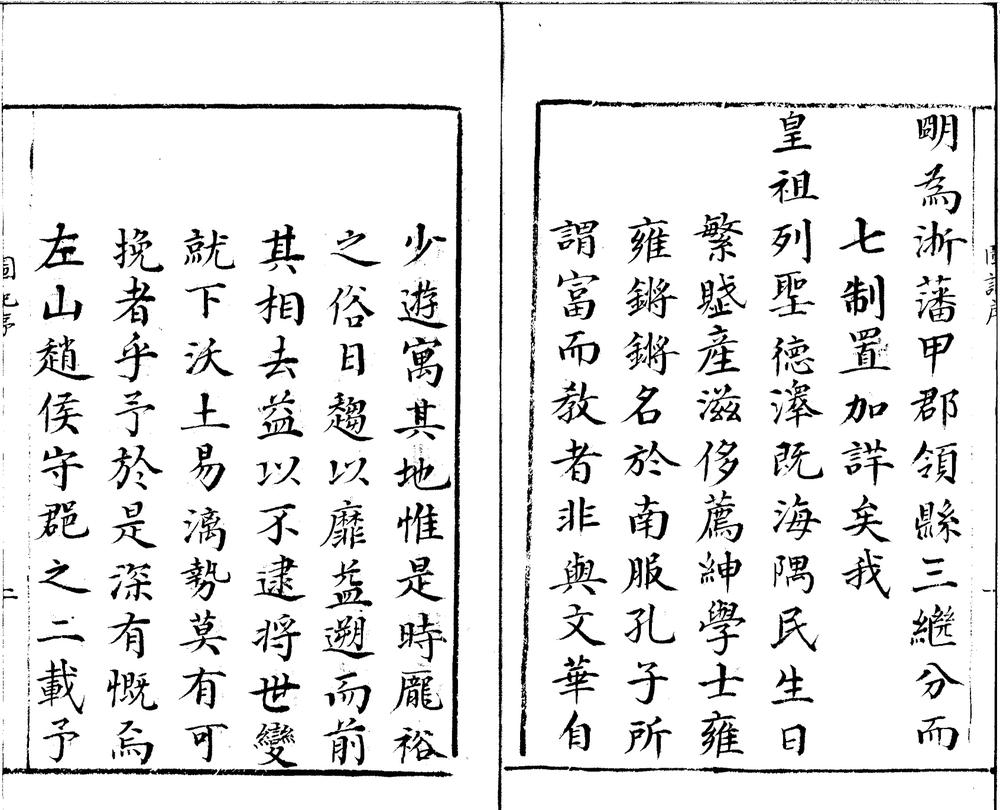 明為浙藩甲郡領縣三繼分而
七制置加詳矣我
皇祖列聖德澤既海隅民生日
繁賦產滋侈薦紳學士雍
雍鏘鏘名於南服孔子所
謂富而教者非與文華自
少遊寓其地惟是時龐裕
之俗日趨以靡益遡而前
其相去益以不逮將世變
就下沃土易漓勢莫有可
挽者乎予於是深有慨焉
左山趙侯守郡之二載予